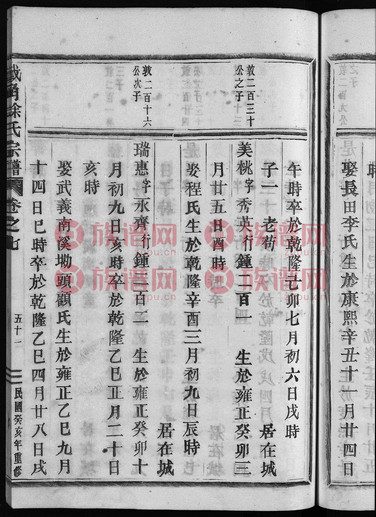 娶長田李氏生於康熙辛丑十一月廿四日
午時卒於乾隆己卯七月初六日戌時
子一老荀
居在城
敦二百三十
公之子
美桃字秀英行鍾二百
生於雍正癸卯三
月廿五日酉時
娶程氏生於乾隆辛酉三月初九日辰時
居在城
敦二百十六
公次子
瑞惠字永齋行鍾二百二
生於雍正癸卯十
月初九日亥時卒於乾隆乙巳正月二十日
亥時
娶武義南溪坳頭顧氏生於雍正乙巳九月
十四日巳時卒於乾隆乙巳四月廿八日戌
徐氏宗譜
卷之七
五十一
民國癸亥年重修
族譜網
zupu.cn